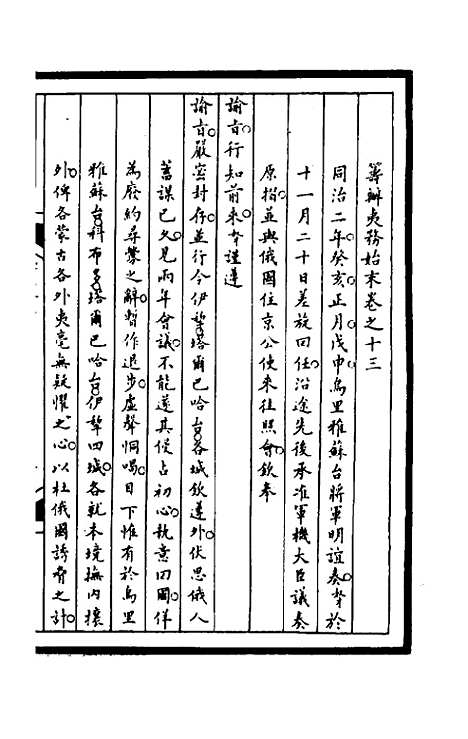 籌辦夷務始末卷之十三
同治二年癸亥正月戊申烏里雅蘇台將軍明誼奏。奴才於
十一月二十日差旋回任。沿途先後承准軍機大臣議奏
原摺。並與俄國住京公使來往照會。欽奉
諭旨。行知前來。奴才謹遵
諭旨。嚴密封存。並行令伊犁塔爾巴哈台各城欽遵外。伏思俄人
蓄謀已久。見兩年會議。不能遂其侵占初心。執意回國。佯
為廢約尋釁之辭。暫作退步。虛聲恫喝。目下惟有於烏里
雅蘇台科布多塔爾巴哈台伊犁四城。各就本境。撫內攘
外。俾各蒙古各外夷。毫無疑懼之心。以杜俄國誘脅之計。